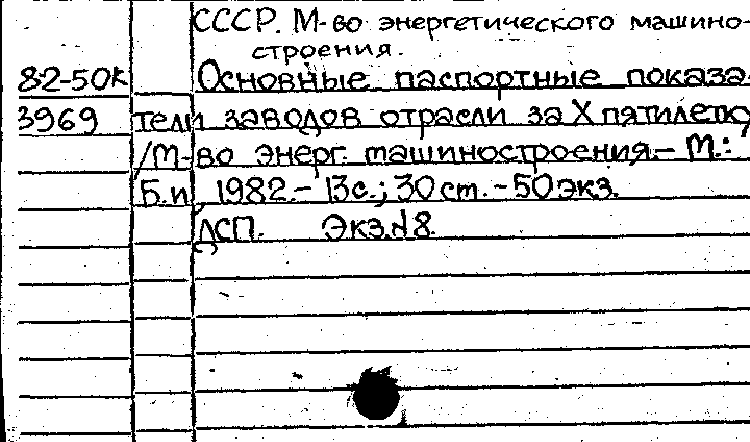 СССР. М-во энергетического машино-
строения.
82-50к Основные паспортные показа-
3969 тели заводов отрасли за X пятилетку
/М-во энерг. машиностроения.- М.:
Б.и, 1982.- 13с.; 30 ст. - 50 экз.
ДСП. Экз.№8.